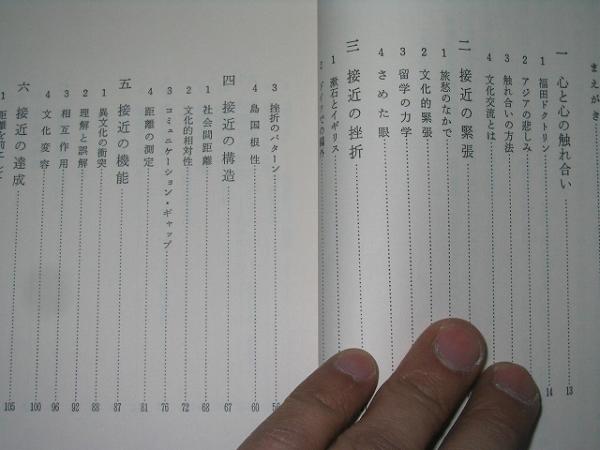 まえがき
一 心と心の触れ合い 13
1 福田ドクトリン 14
2 アジアの悲しみ
3 触れ合いの方法
4 文化交流とは
二 接近の緊張
1 旅愁のなかで
2 文化的緊張
3 留学の力学
4 さめた眼
三 接近の挫折
1 漱石とイギリス
2
3 挫折のパターン
4 島国根性 60
四 接近の構造 67
1 社会間距離 68
2 文化的相対性 72
3 コミュニケーション・ギャップ 76
4 距離の測定 81
五 接近の機能 87
1 異文化の衝突 88
2 理解と誤解 92
3 相互作用 96
4 文化変容 100
六 接近の達成 105
1